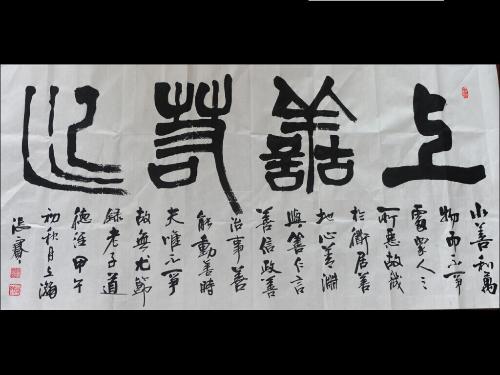 上善若水
水善利萬
物而不爭
處眾人之
所惡故幾
於衟居善
地心善淵
與善仁言
善信政善
治事善
能動善時
夫唯不爭
故無尤節
錄老子道
德經甲午
初秋月上瀚